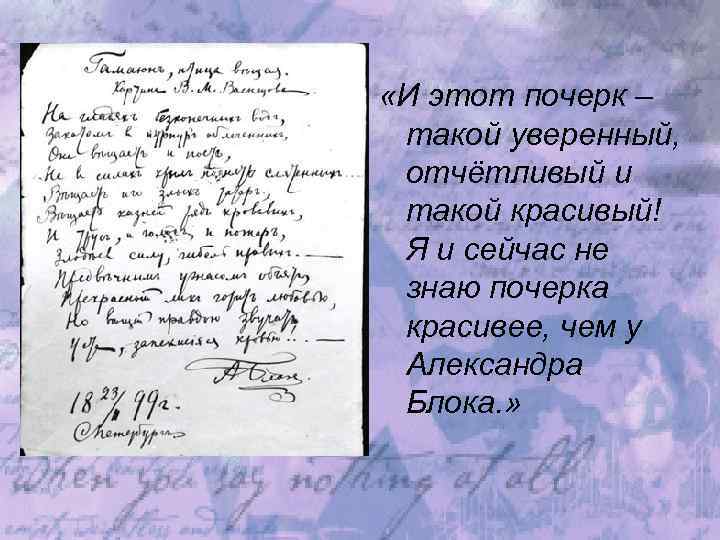 Гамаюнъ, птица вѣщая.
Картина В. М. Васнецова
На гладяхъ безконечныхъ водъ,
Закатомъ в пурпуръ облеченныхъ,
Она вѣщаетъ и поетъ,
Не в силахъ крыл поднять смятенныхъ...
Вѣщаетъ иго злыхъ татаръ,
Вѣщаетъ казней рядъ кровавыхъ,
И трусъ, и голодъ, и пожаръ,
Злодѣевъ силу, гибель правыхъ...
Предвѣчнымъ ужасомъ объятъ,
Прекрасный ликъ горитъ любовью,
Но вѣщей правдою звучатъ
Уста, запекшіяся кровью!..
А Блок.
18 23/II 99 г.
С.Петербургъ.
«И этот почерк –
такой уверенный,
отчётливый и
такой красивый!
Я и сейчас не
знаю почерка
красивее, чем у
Александра
Блока. »
When you say nothing at all